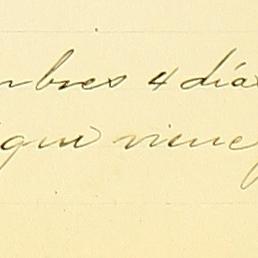 mbres 4 días
que viene